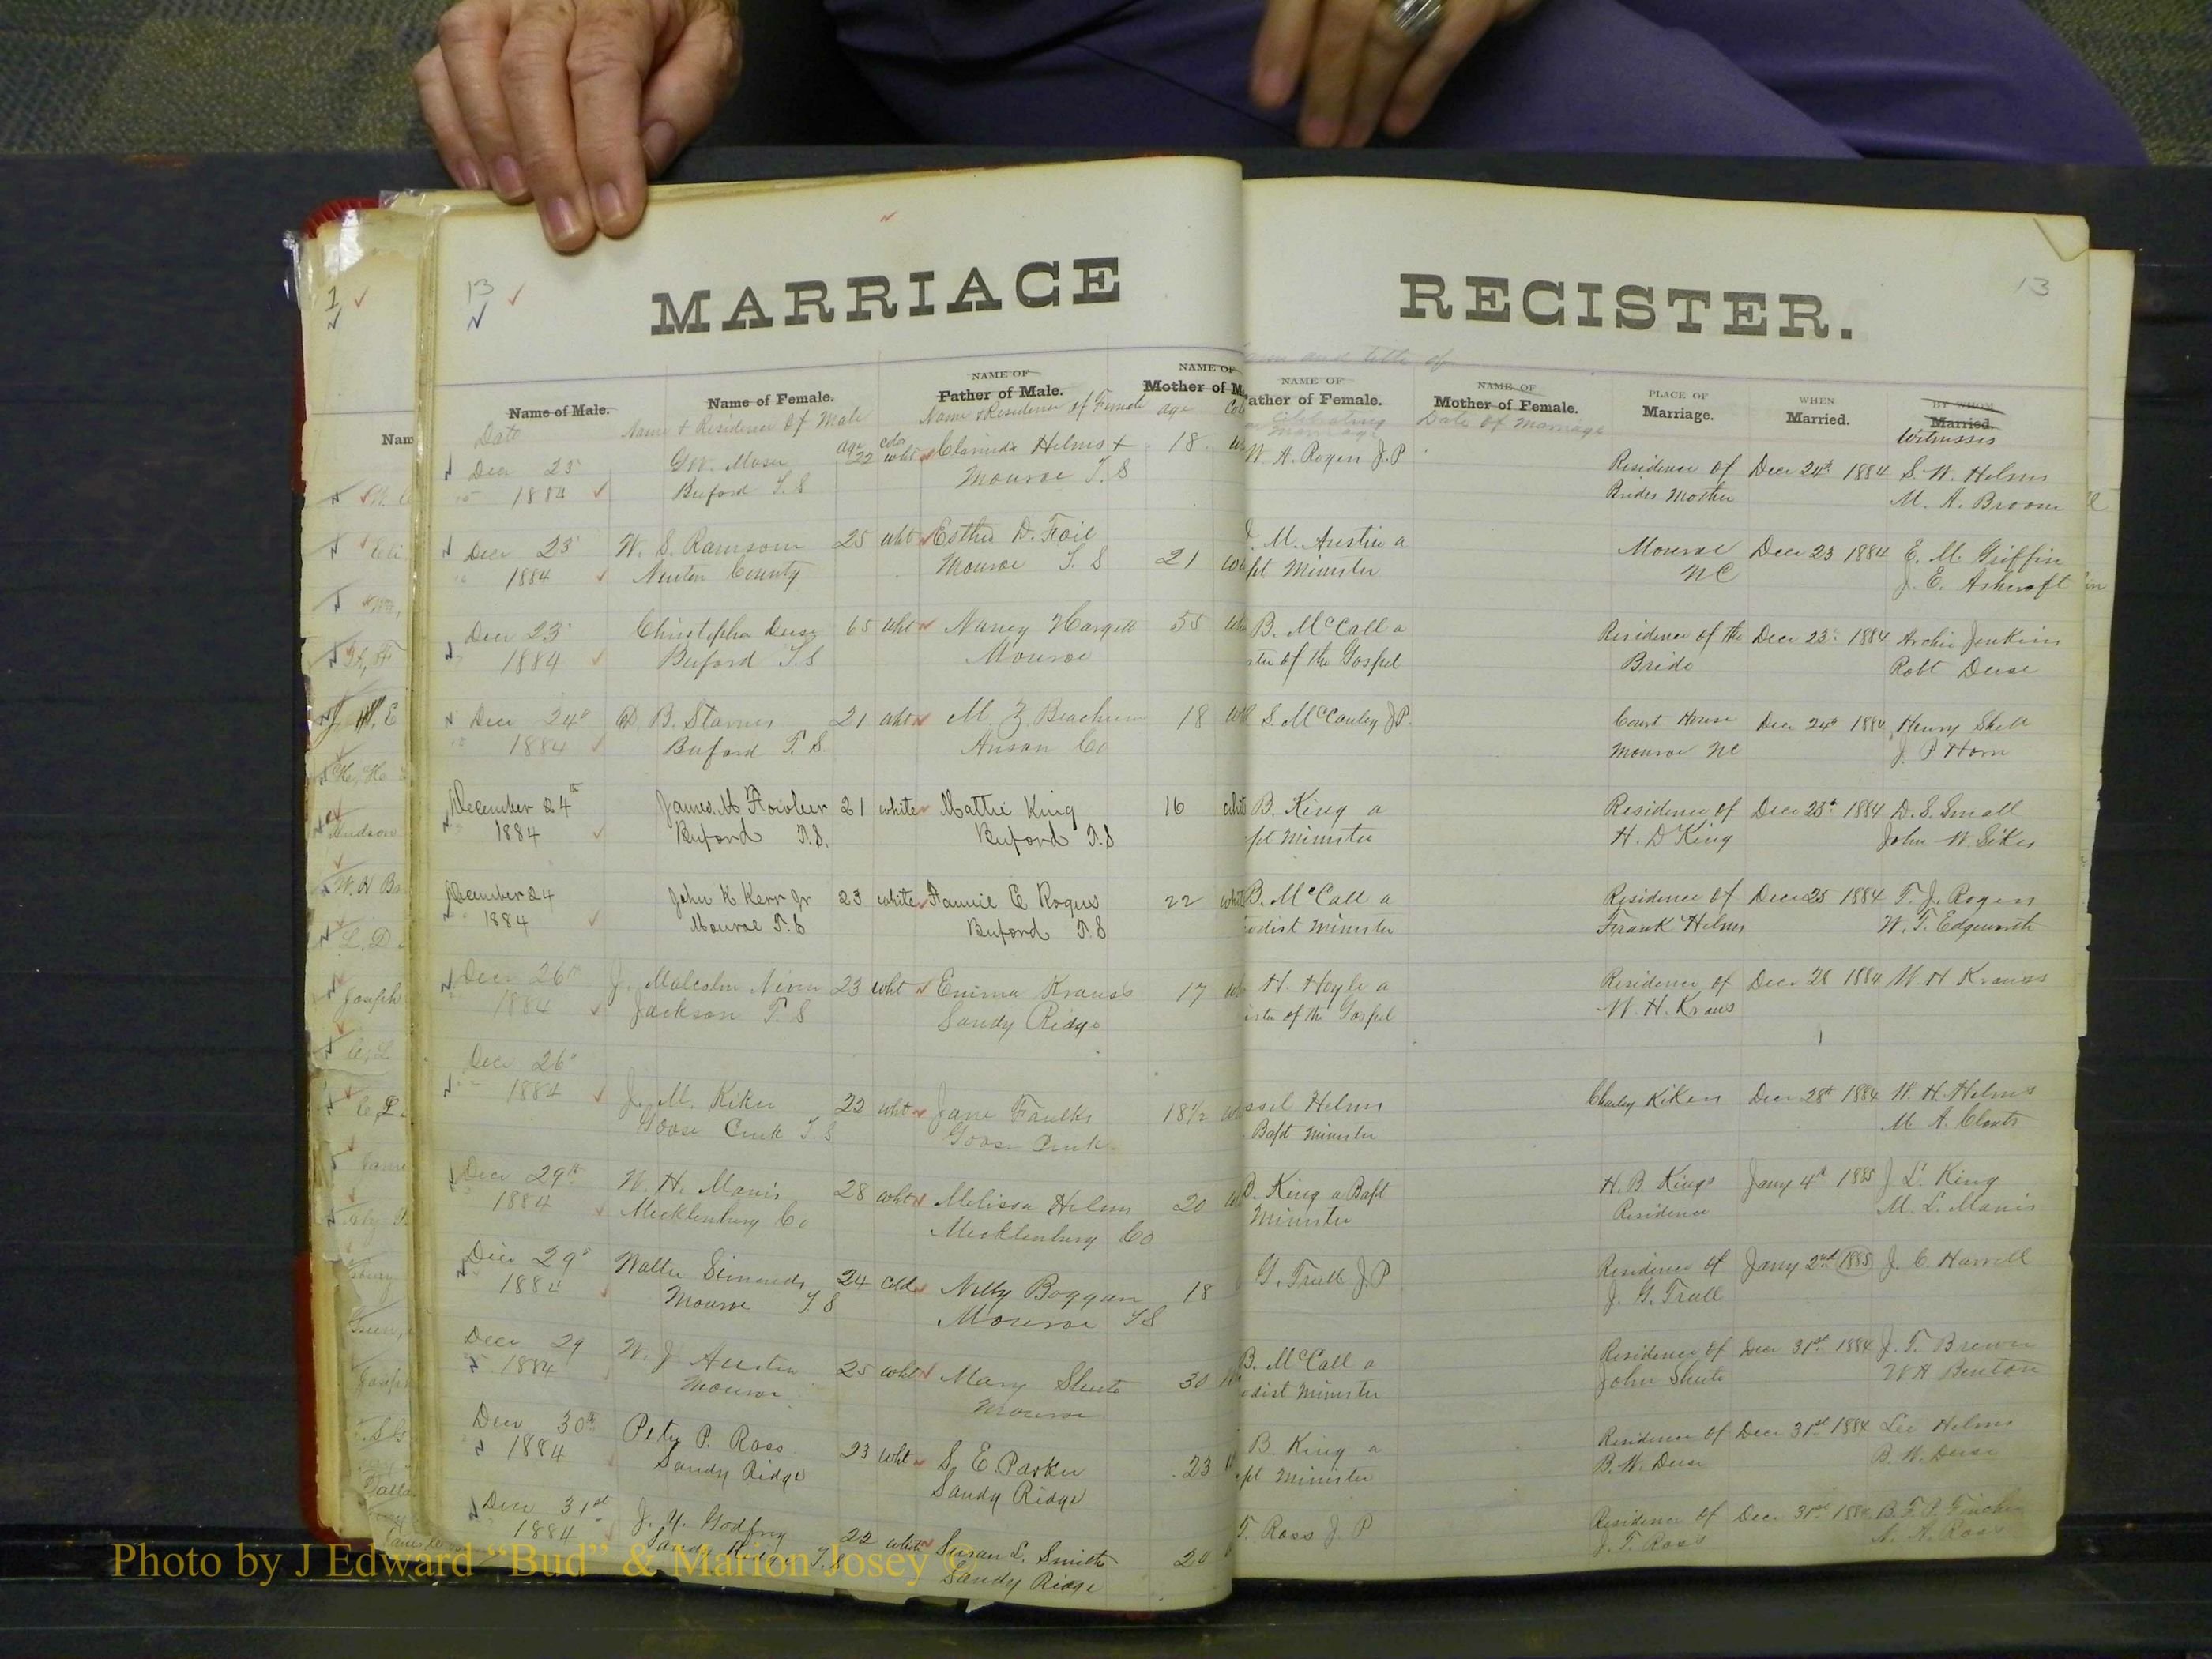 13
MARRIAGE REGISTER.
13
Name of Male.
Name of Female.
NAME OF
Father of Male.
NAME OF
Mother of M
NAME OF
ather of Female.
NAME OF
Mother of Female.
PLACE OF
Marriage.
WHEN
Married.
BY WHOM
Married.
Date
Name & Residence of Male
age
color
Name & Residence of Female
age
Date of Marriage
Witnesses
Dec 23
1884
Buford T.S
22
Helms
Monroe T.S
18
W. A. Rogers J.P
Residence of
Brides Mother
Dec 24th 1884
S. W. Helms
M. A. Broom
Dec 23
1884
W. S. Ransom
Newton County
25 wht
Esther D. Foil
Monroe T.S
21
M. Austin a
pt Minister
Monroe
NC
Dec 23 1884
E. M. Griffin
J. E. Ashcraft
Dec 23
1884
Christopher Deese
Buford T.S
65 wht
Nancy Hargett
Monroe
55
B. McCall a
ster of the Gospel
Residence of the
Bride
Dec 23 1884
Archie Jenkins
Robt Deese
Dec 24
1884
D. B. Starnes
Buford T.S.
21 wht
M. Z. Beachum
Anson Co
18
S. McCauley J.P.
Court House
Monroe NC
Dec 24th 1884
Henry Shell
J. P Horn
December 24th
1884
James M Fowler
Buford T.S.
21 white
Mattie King
Buford T.S
16
B. King a
pt Minister
Residence of
H. D King
Dec 25th 1884
D. S. Small
John W. Sikes
December 24
1884
John K Kerr Jr
Monroe T.S
23 white
Fannie E Rogers
Buford T.S
22
B. McCall a
odist Minister
Residence of
Frank Helms
Dec 25 1884
T. J. Rogers
W. T. Edgeworth
Dec 26th
1884
J. Malcolm Niven
Jackson T.S
23 wht
Emma Krauss
Sandy Ridge
17
H. Hoyle a
ister of the Gospel
Residence of
W. H. Kraus
Dec 28 1884
W H Krauss
Dec 26
1884
J. M. Kiker
Goose Creek T.S
22 wht
Jane Faulks
Goose Creek
18½
ssel Helms
Bapt Minister
Charley Kikers
Dec 28th 1884
W. H. Helms
M. A. Clonts
Dec 29th
1884
W. H. Manis
Mecklenburg Co
28 wht
Melissa Helms
Mecklenburg Co
20
B. King a Bapt
Minister
H. B. Kings
Residence
Jany 4th 1885
J L. King
M. L. Manis
Dec 29
1884
Walter Simonds
Monroe T.S
24 cold
Nelly Boggan
Monroe T.S
18
G. Trull J.P
Residence of
J. G. Trull
Jany 2nd 1885
J. C. Harrell
Dec 29
1884
W. J Austin
Monroe
25 wht
Mary Shute
Monroe
30
B. McCall a
odist Minister
Residence of
John Shute
Dec 31st 1884
J. T. Brewer
W H Benton
Dec 30th
1884
Peter P. Ross
Sandy Ridge
23 wht
S. E. Parker
Sandy Ridge
23
B. King a
pt Minister
Residence of
B. W. Deese
Dec 31st 1884
Lee Helms
B. W. Deese
Dec 31st
1884
J. Y. Godfrey
22 white
Susan L. Smith
Sandy Ridge
20
T. Ross J P
Residence of
J. T. Ross
Dec 31st 1884
B. F. P. Fincher
A. A. Ross
Photo by J Edward “Bud” & Marion Josey ©